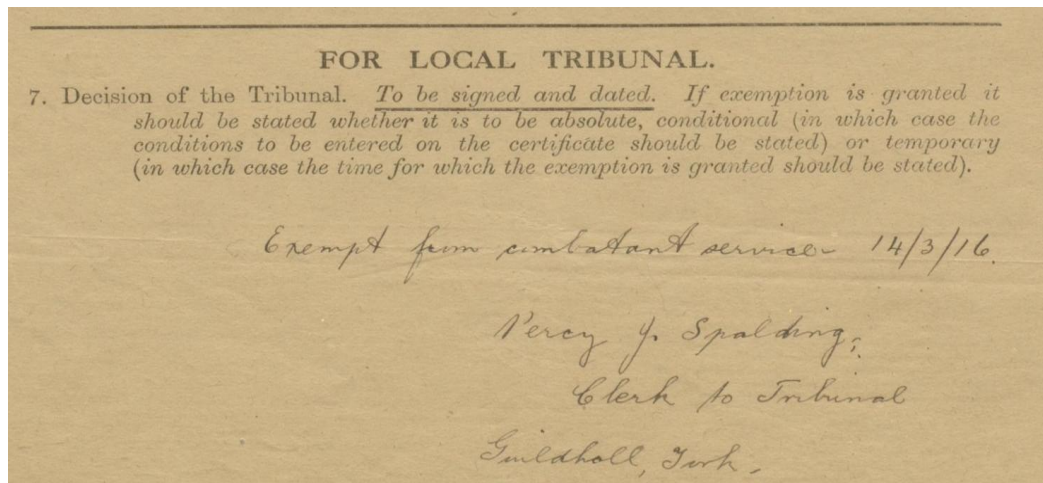 FOR LOCAL TRIBUNAL.
7. Decision of the Tribunal. To be signed and dated. If exemption is granted it
should be stated whether it is to be absolute, conditional (in which case the
conditions to be entered on the certificate should be stated) or temporary
(in which case the time for which the exemption is granted should be stated).
Exempt from combatant service - 14/3/16.
Percy J. Spalding,
Clerk to Tribunal
Guildhall, York.